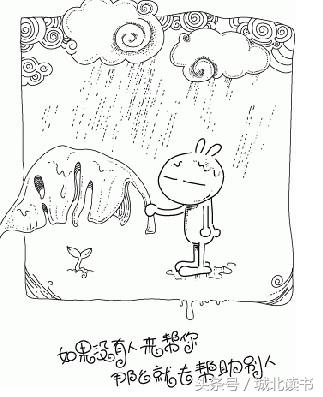 如果没有人来帮你
那么就去帮助别人
头条号／城北读书